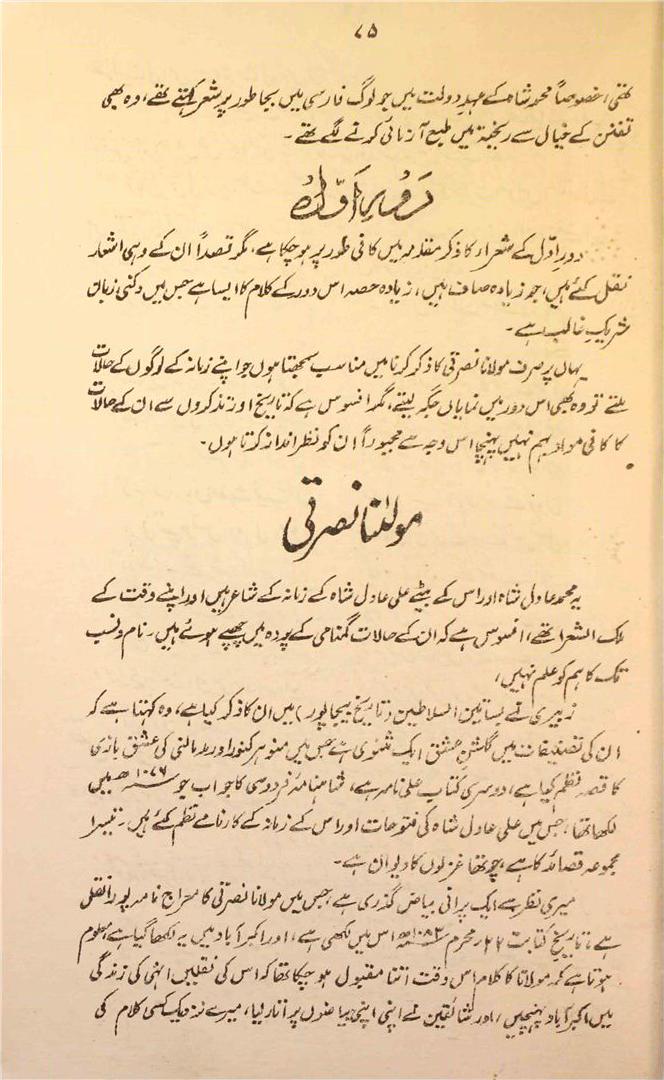 ۷۵
تھی، خصوصاً محمد شاہ کے عہدِ دولت میں جو لوگ فارسی میں بجا طور پر شعر کہتے تھے، وہ بھی
تفنن کے خیال سے ریختہ میں طبع آزمائی کرنے لگے تھے۔
دورِ اوّل
دورِ اوّل کے شعراء کا ذکر مقدمہ میں کافی طور پر ہو چکا ہے، مگر قصداً ان کے وہی اشعار
نقل کئے ہیں، جو زیادہ صاف ہیں، زیادہ حصہ اس دور کے کلام کا ایسا ہے جس میں دکنی زبان
شریکِ غالب ہے۔
یہاں پر صرف مولانا نصرتی کا ذکر کرنا میں مناسب سمجھتا ہوں جو اپنے زمانہ کے لوگوں کے حالات
ملتے تو وہ بھی اس دور میں نمایاں جگہ لیتے، مگر افسوس ہے کہ تاریخ اور تذکروں سے ان کے حالات
کا کافی مواد بہم نہیں پہنچا اس وجہ سے مجبوراً ان کو نظر انداز کرتا ہوں۔
مولٰنا نصرتی
یہ محمد عادل شاہ اور اس کے بیٹے علی عادل شاہ کے زمانہ کے شاعر ہیں اور اپنے وقت کے
ملک الشعرا تھے، افسوس ہے کہ ان کے حالات گمنامی کے پردہ میں چھپے ہوئے ہیں۔ نام و نسب
تک کا ہم کو علم نہیں،
زبیری نے بساتین السلاطین (تاریخ بیجاپور) میں ان کا ذکر کیا ہے، وہ کہتا ہے کہ
ان کی تصنیفات میں گلشنِ عشق ایک مثنوی ہے جس میں منوہر کنور اور مدمالتی کی عشق بازی
کا قصہ نظم کیا ہے، دوسری کتاب علی نامہ ہے، شاہنامہ فردوسی کا جواب جو ۱۰۷۶ھ میں
لکھا تھا، جس میں علی عادل شاہ کی فتوحات اور اس کے زمانہ کے کارنامے نظم کئے ہیں۔ تیسرا
مجموعہ قصائد کا ہے، چوتھا غزلوں کا دیوان ہے۔
میری نظر سے ایک پرانی بیاض گذری ہے جس میں مولانا نصرتی کا معراج نامہ پورا نقل
ہے، تاریخ کتابت ۲۲ محرم ۱۰۸۳ھ اس میں لکھی ہے، اور اکبرآباد میں یہ لکھا گیا ہے، معلوم
ہوتا ہے کہ مولانا کا کلام اس وقت اتنا مقبول ہو چکا تھا کہ اس کی نقلیں انہی کی زندگی
میں اکبرآباد پہنچیں، اور شائقین نے اپنی اپنی بیاضوں پر اتار لیا، میرے نزدیک کسی کلام کی